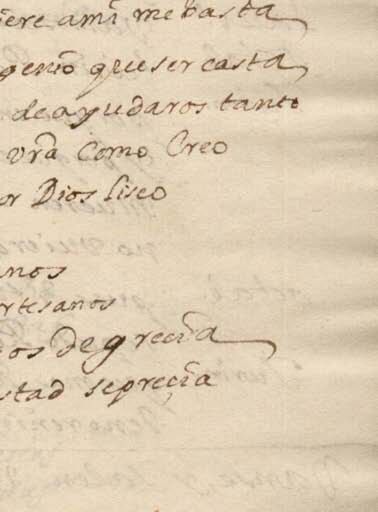 iere ami me basta
genio que ser casta
de ayudaros tanto
vra Como Creo
or Dios liseo
anos
rtesanos
os de grecia
stad seprecia